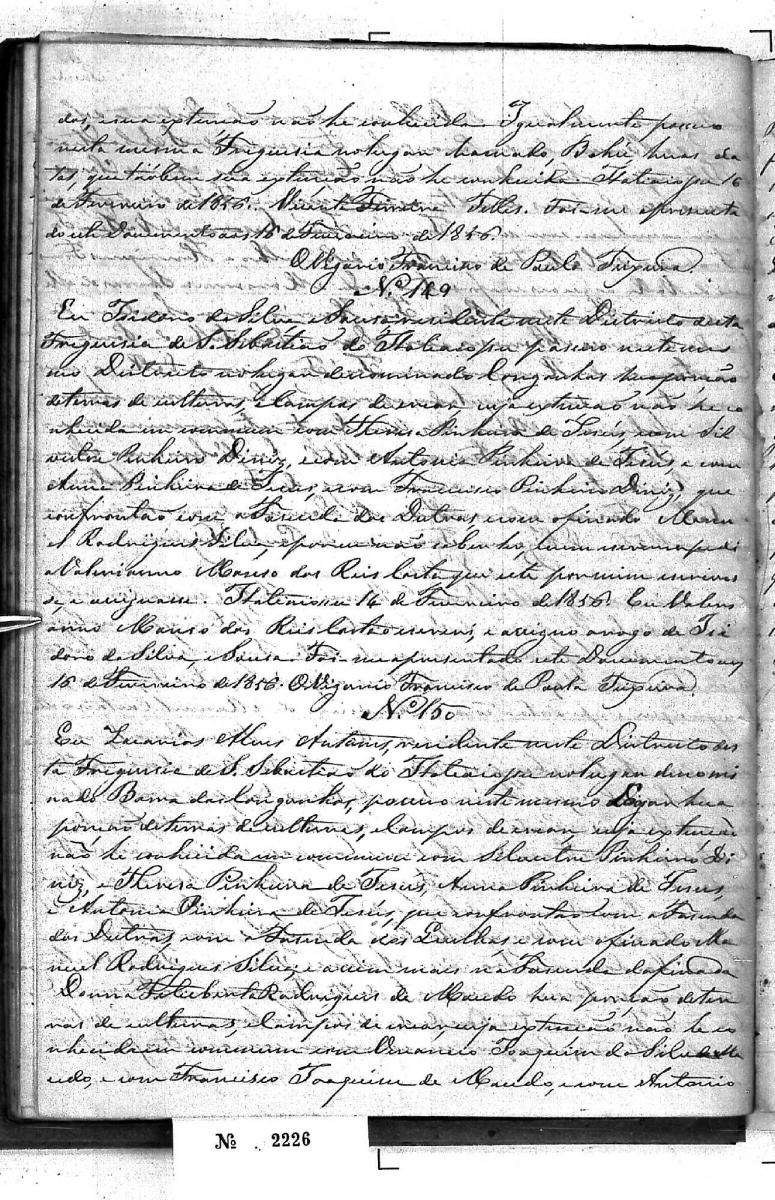 dos, e sua extenção não he conhecida Igualmente possuo
nesta mesma Freguesia no lugar chamado, Bahú huas da
tas, que tãobem sua extenção não he conhecida Itatiaiopu 16
de Fevereiro de 1856. Vicente Telles. Foi-me apresenta
do este Documento aos 16 de Fevereiro de 1856.
O Vigario Francisco de Paula Teixeira.
No. 149
Eu Isidoro da Silva e Sousa residente neste Districto desta
Freguesia de S. Sebastião do Itatiaiopu possuo neste mes
mo Districto no lugar denominado Conganhas hua porção
de terras de culturas, e Campos de criar, cuja extenção não he co
nhecida em commum com Theresa Pinheira de Jesús, e com Sil
vestre Pinheiro Diniz, e com Antonia Pinheira de Jesús, e com
Anna Pinheira de Jesus, e com Francisco Pinheiro Diniz, que
confrontão com a Fasenda dos Dutras e com o finado Mano
el Rodrigues Silva, e por eu não saber ler, nem escrever pedi
a Valerianno Manso dos Reis Costa que este por mim escreves
se, e assignasse. Itatiaiossu 14 de Fevereiro de 1856. Eu Valeri
anno Manso dos Reis Costa o escreví, e assigno a rogo de Isi
doro da Silva, e Sousa Foi-me apresentado este Documento aos
16 de Fevereiro de 1856 O Vigario Francisco de Paula Teixeira.
No. 150
Eu Zacarias Alves Antunes, residente neste Districto des
ta Freguesia de S. Sebastião do Itatiaiopu no lugar denomi
nado Barra das Conganhas, possuo neste mesmo Logar hua
porção de terras de culturas, e Campos de criar cuja extenção
não he conhecida em commum com Silvestre Pinheiro Di
niz, e Theresa Pinheira de Jesús, Anna Pinheira de Jesus,
e Antonia Pinheira de Jesús, que confrontão com a Fasenda
dos Dutras, com a Fasenda das e com o finado Ma
noel Rodrigues Silva, e assim mais na Fasenda da finada
Donna Rodrigues de Macedo hua porção de ter
ras de culturas, e Campos de criar, cuja extenção não he co
nhecida em commum com Venancio Joaquim da Silva Ma
cedo, e com Francisco Joaquim de Macedo, e com Antonio
No 2226